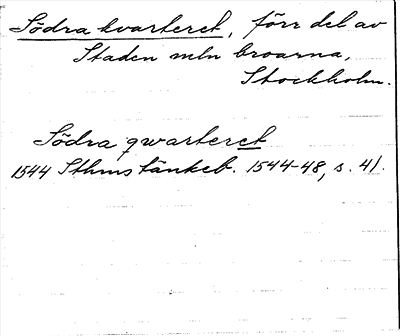 Södra kvarteret, förr del av
Staden mln broarna,
Stockholm.
Södra qwarteret
1544 Sthms tänkeb. 1544-48, s. 41.